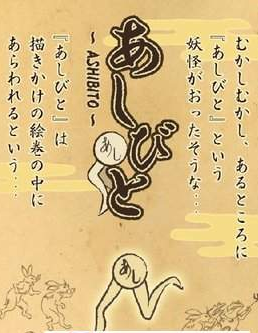 むかしむかし、あるところに
『あしびと』という
妖怪がおったそうな･･･
あしびと
～ ASHIBITO ～
あし
『あしびと』は
描きかけの絵巻の中に
あらわれるという･･･
あし